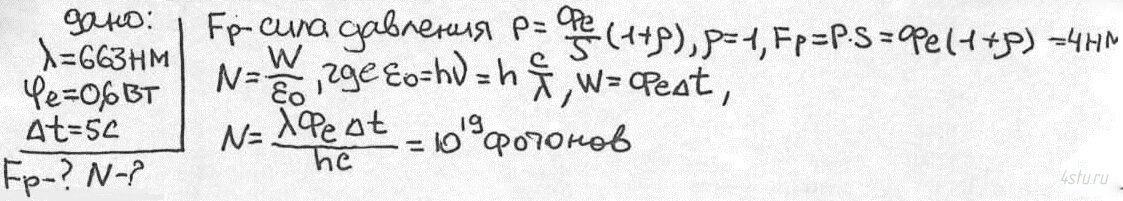 дано:
λ=663нм
φe=0,6Вт
Δt=5с
Fp-? N-?
Fp-сила давления P=Фe/S(1+ρ), ρ=1, Fp=P·S=Фe(1+ρ)=4нН
N=W/ε0, где ε0=hν=h c/λ, W=ФeΔt,
N=λФeΔt/hc=10^19фотонов
4stu.ru